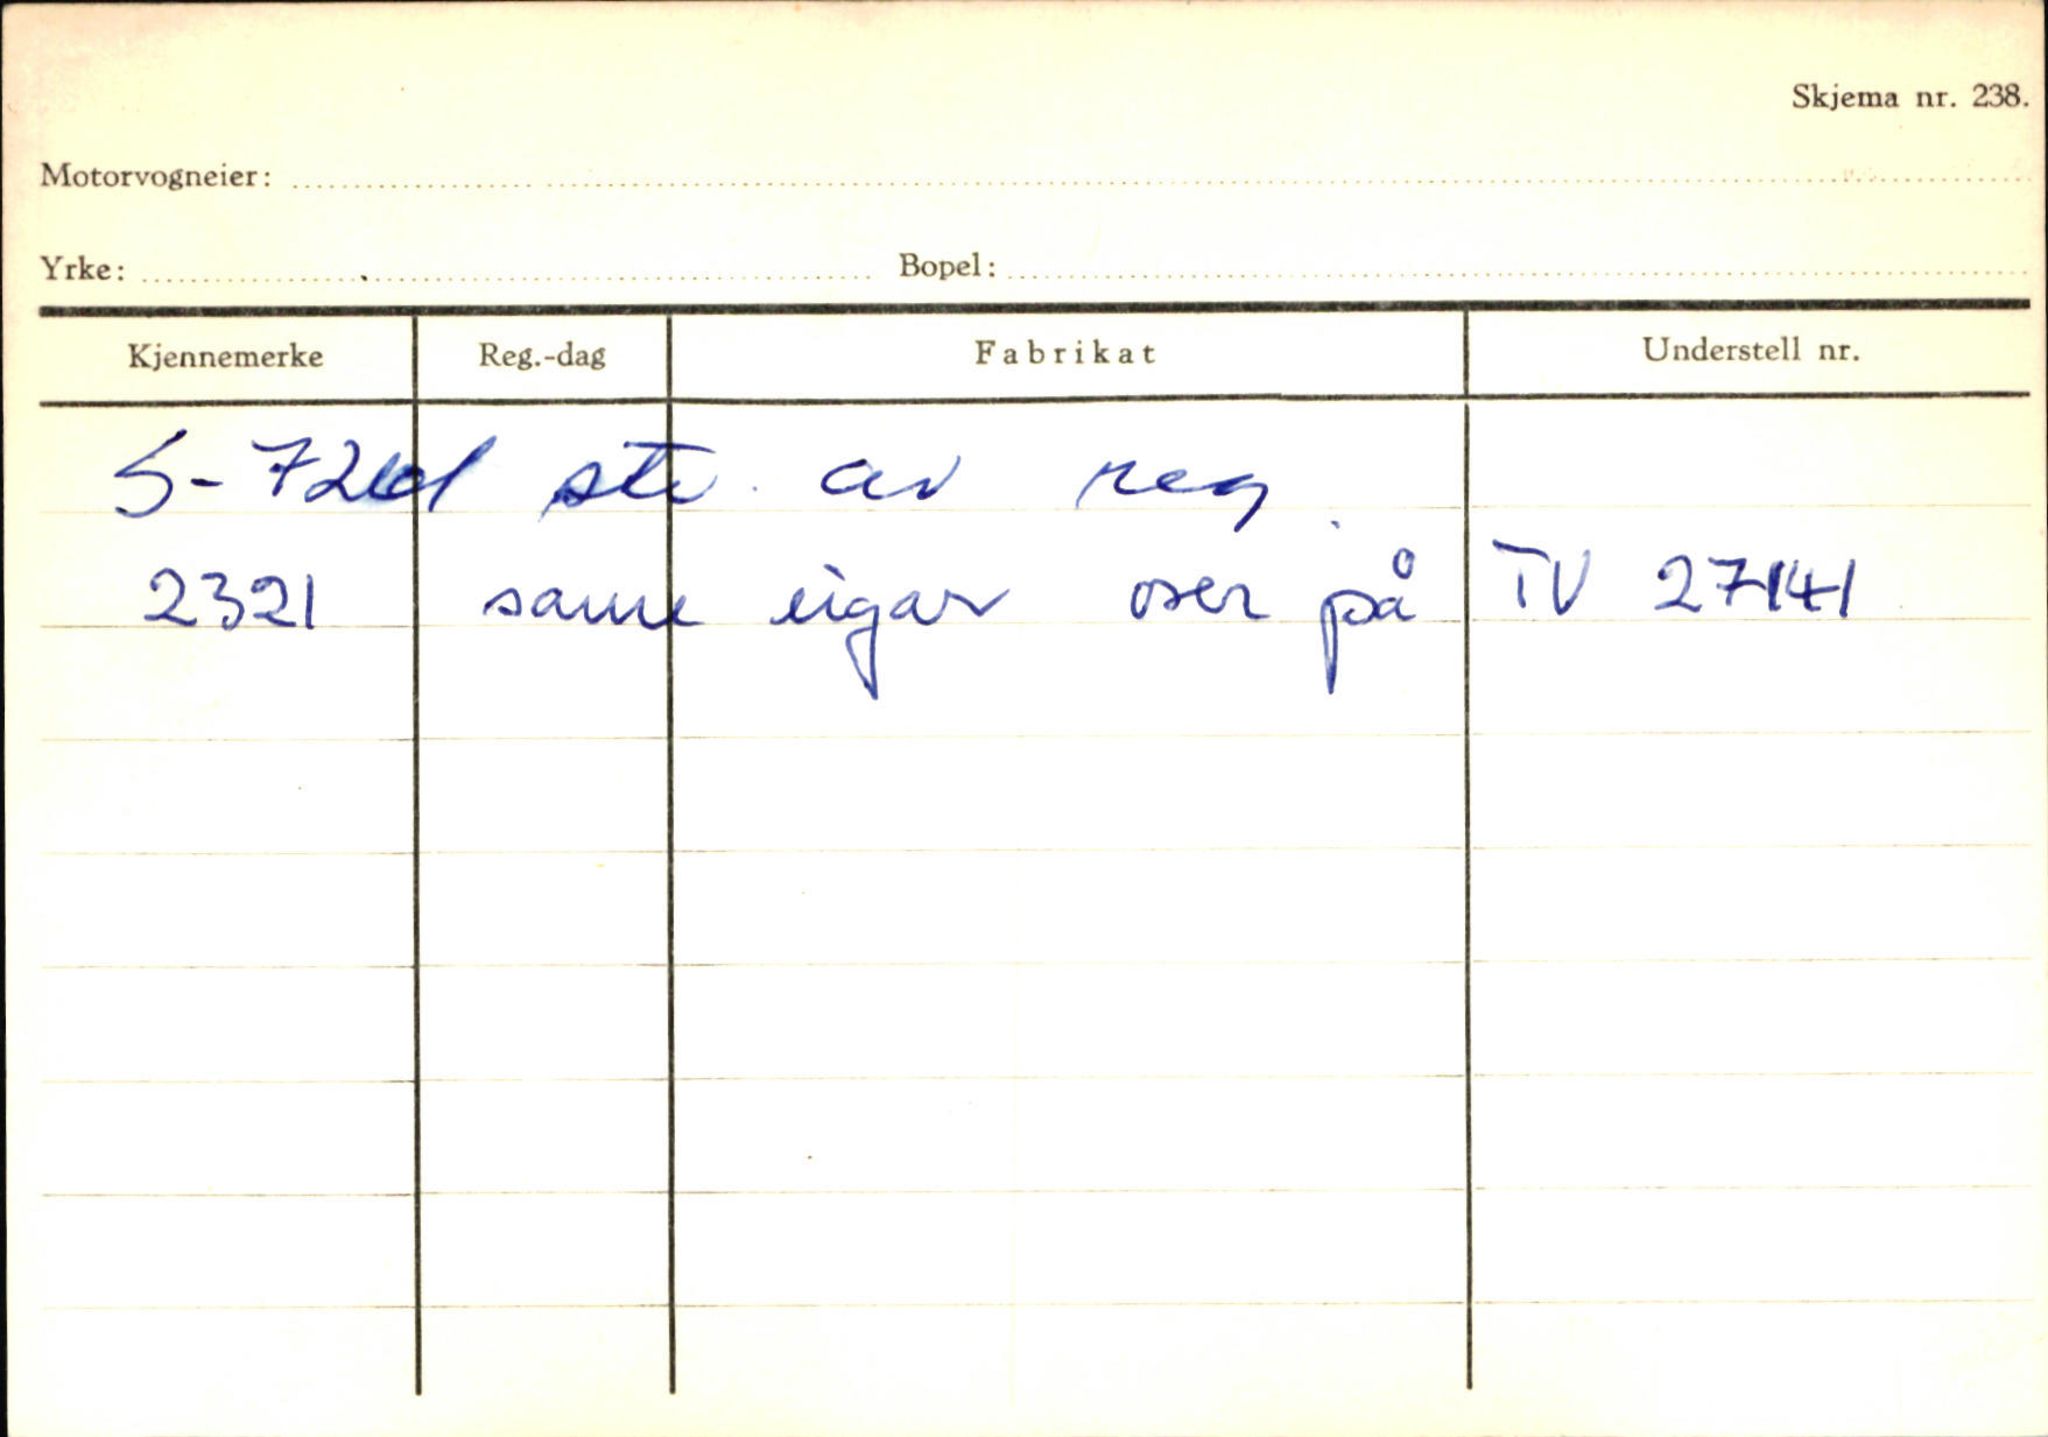 Skjema nr. 238.
Motorvogneier:
Yrke: Bopel:
Kjennemerke Reg.-dag Fabrikat Understell nr.
av reg.
2321 same eigar over på TV 27141